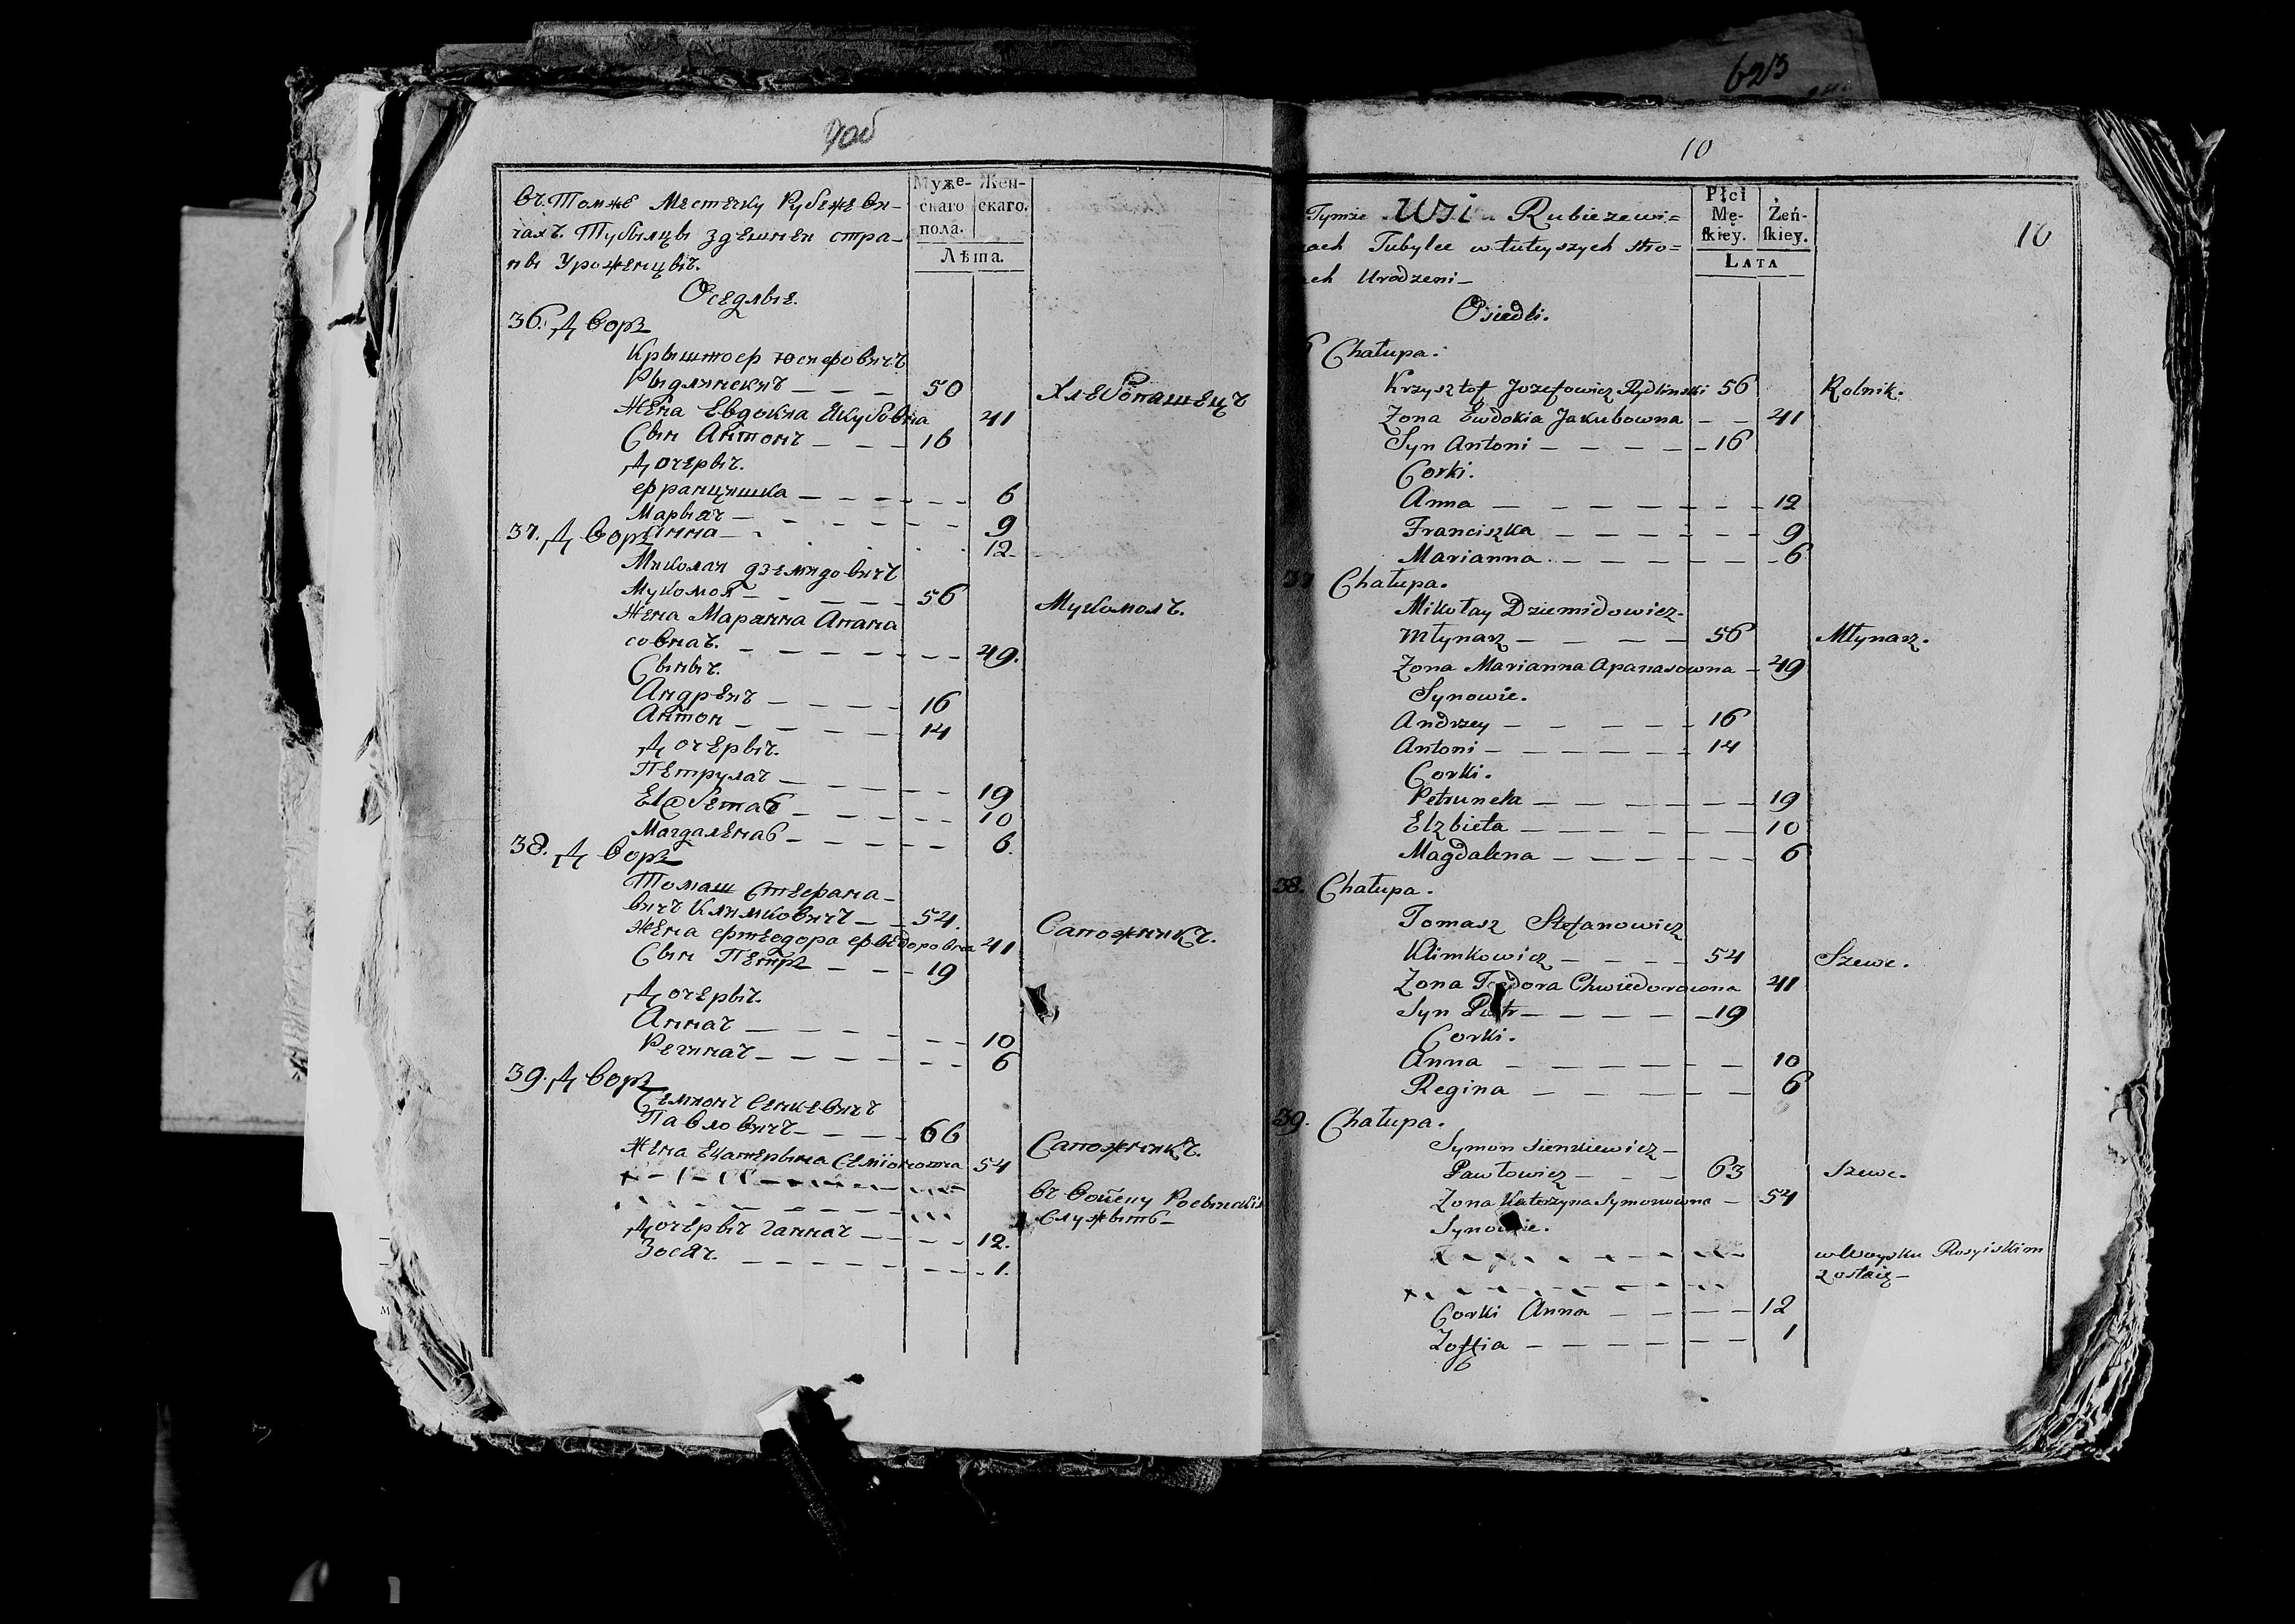 623
10
Муже-
скаго
пола.
Жен-
скаго.
Лѣта.
въ Томже Местечку Рубежеви-
чахъ. Тубылцы здешнеи стра-
ны Уроженцыъ.
Оседлые.
36. Дворъ
Крыштоф Юсифовичъ
Рыдлинскиъ — — — 50
Хлебопашецъ
Жена Евдокиа Якубовна 41
Сын Антонъ — — — 16
Дочерыъ.
Францишка — — — 6
Марыаъ — — — 9
37. Дворъ
Анна — 12
Миколаи Дземидовичъ
Мукомол — — — 56
Мукомолъ.
Жена Марянна Апана
совнаъ. — — — 49.
Сыныъ.
Андреиъ — — — 16
Антон — — — 14
Дочерыъ.
Петрулаъ — — — 19
— — — 10
Магдаленаъ — — — 6.
38. Дворъ
Томаш Стефана-
вичъ Климковичъ — 54.
Сапожникъ.
Жена Фтеодора Фведоровна 41
Сын Петръ — — — 19
Дочерыъ.
Аннаъ — — — 10
Регинаъ — — — 6
39. Дворъ
Семионъ Сенкевичъ
Павловичъ — — — 66
Сапожникъ.
Жена Екатерына Семионовна 54
въ Войску Росыискiи
служытъ —
Дочерыъ Ганнаъ — — 12.
Зосяъ. — — — 1.
10
Płci
Mę-
skiey.
Żeń-
skiey.
Lata
Tymże WSi Rubieżewi=
ach Tubylce w tuteyszych stro=
ch Urodzeni —
Osiedli.
6 Chałupa.
Krzysztof Jozefowicz Rydlinski 56 Rolnik.
Zona Ewdokia Jakubowna — — 41
Syn Antoni — — — — 16
Corki.
Anna — — — — 12
Franciszka — — — — 9
Marianna — — — — 6
37 Chałupa.
Mikołay Dziemidowicz
Młynarz — — — — 56 Młynarz.
Zona Marianna Apanasowna — 49
Synowie.
Andrzey — — — — 16
Antoni — — — — 14
Corki.
Petrunela — — — — 19
Elzbieta — — — — 10
Magdalena — — — — 6
38. Chałupa.
Tomasz Stefanowicz
Klimkowicz — — — — 54 Szewc.
Zona Teodora Chwiedorowna 41
Syn Piotr — — — — 19
Corki.
Anna — — — — 10
Regina — — — — 6
39. Chałupa.
Symon Sienkiewicz —
Pawłowicz — — — 63 Szewc.
Zona Katerzyna Symonowna — 54
Synowie.
w Woysku Rosyiskim
zostaią —
Corki Anna — — — 12
Zofia — — — — 1